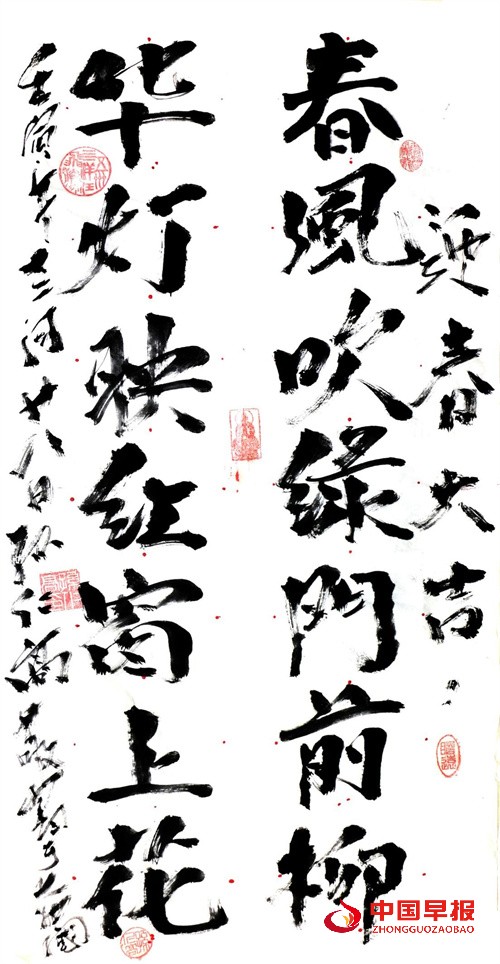 迎春大吉
春風吹綠門前柳
华灯映红窗上花
壬寅年
廿八日孙仁高敬
中国早报
ZHONGGUOZAOBAO